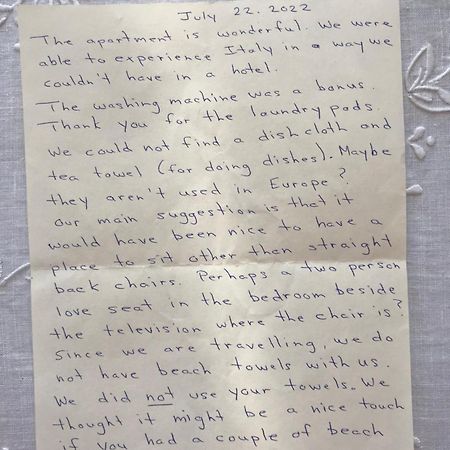 July 22. 2022
The apartment is wonderful. We were
able to experience Italy in a way we
couldn't have in a hotel.
The washing machine was a bonus.
Thank you for the laundry pods.
We could not find a dish cloth and
tea towel (for doing dishes). Maybe
they aren't used in Europe?
Our main suggestion is that it
would have been nice to have a
place to sit other then straight
back chairs. Perhaps a two person
love seat in the bedroom beside
the television where the chair is?
Since we are travelling, we do
not have beach towels with us.
We did not use your towels. We
thought it might be a nice touch
if you had a couple of beach